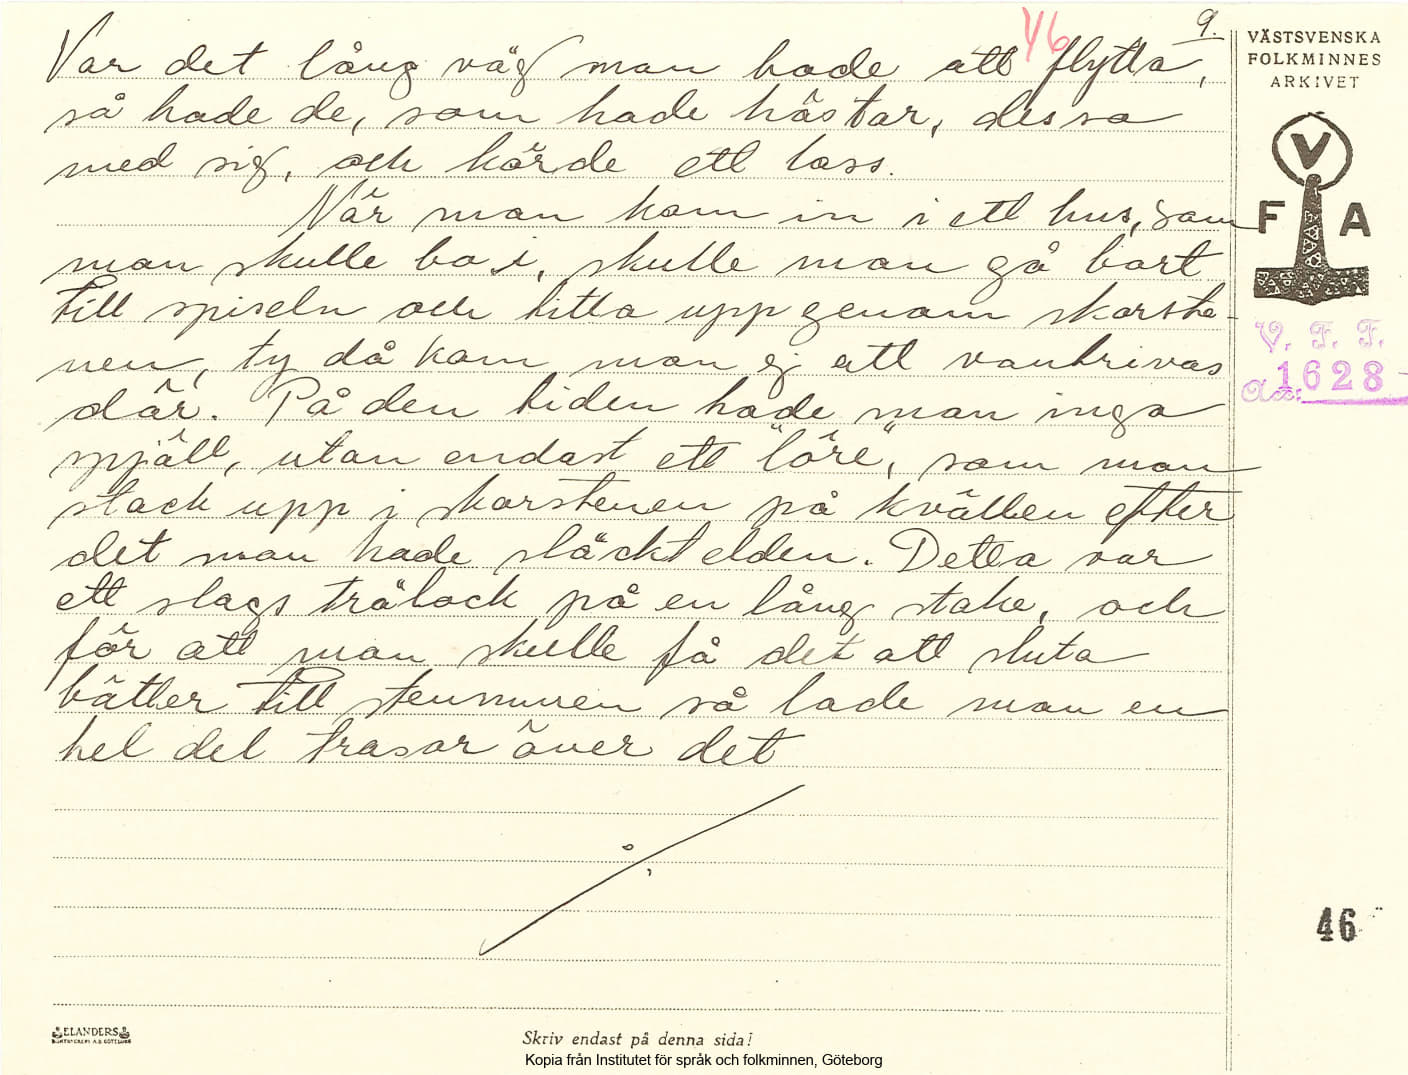 46
9.
Var det lång väg man hade att flytta,
så hade de, som hade hästar, dessa
med sig, och körde ett lass.
När man kom in i ett hus, som
man skulle bo i, skulle man gå bort
till spiseln och titta upp genom skorste-
nen, ty då kom man ej att vantrivas
där. På den tiden hade man inga
spjäll, utan endast ett "löre", som man
stack upp i skorstenen på kvällen efter
det man hade släckt elden. Detta var
ett slags trälock på en lång stake, och
för att man skulle få det att sluta
bätter till stenmuren så lade man en
hel del trasor över det
VÄSTSVENSKA
FOLKMINNES
ARKIVET
V
F A
V. F. F.
Acc: 1628-
46
ELANDERS
BOKTRYCKERI A.B. GÖTEBORG
Skriv endast på denna sida!
Kopia från Institutet för språk och folkminnen, Göteborg